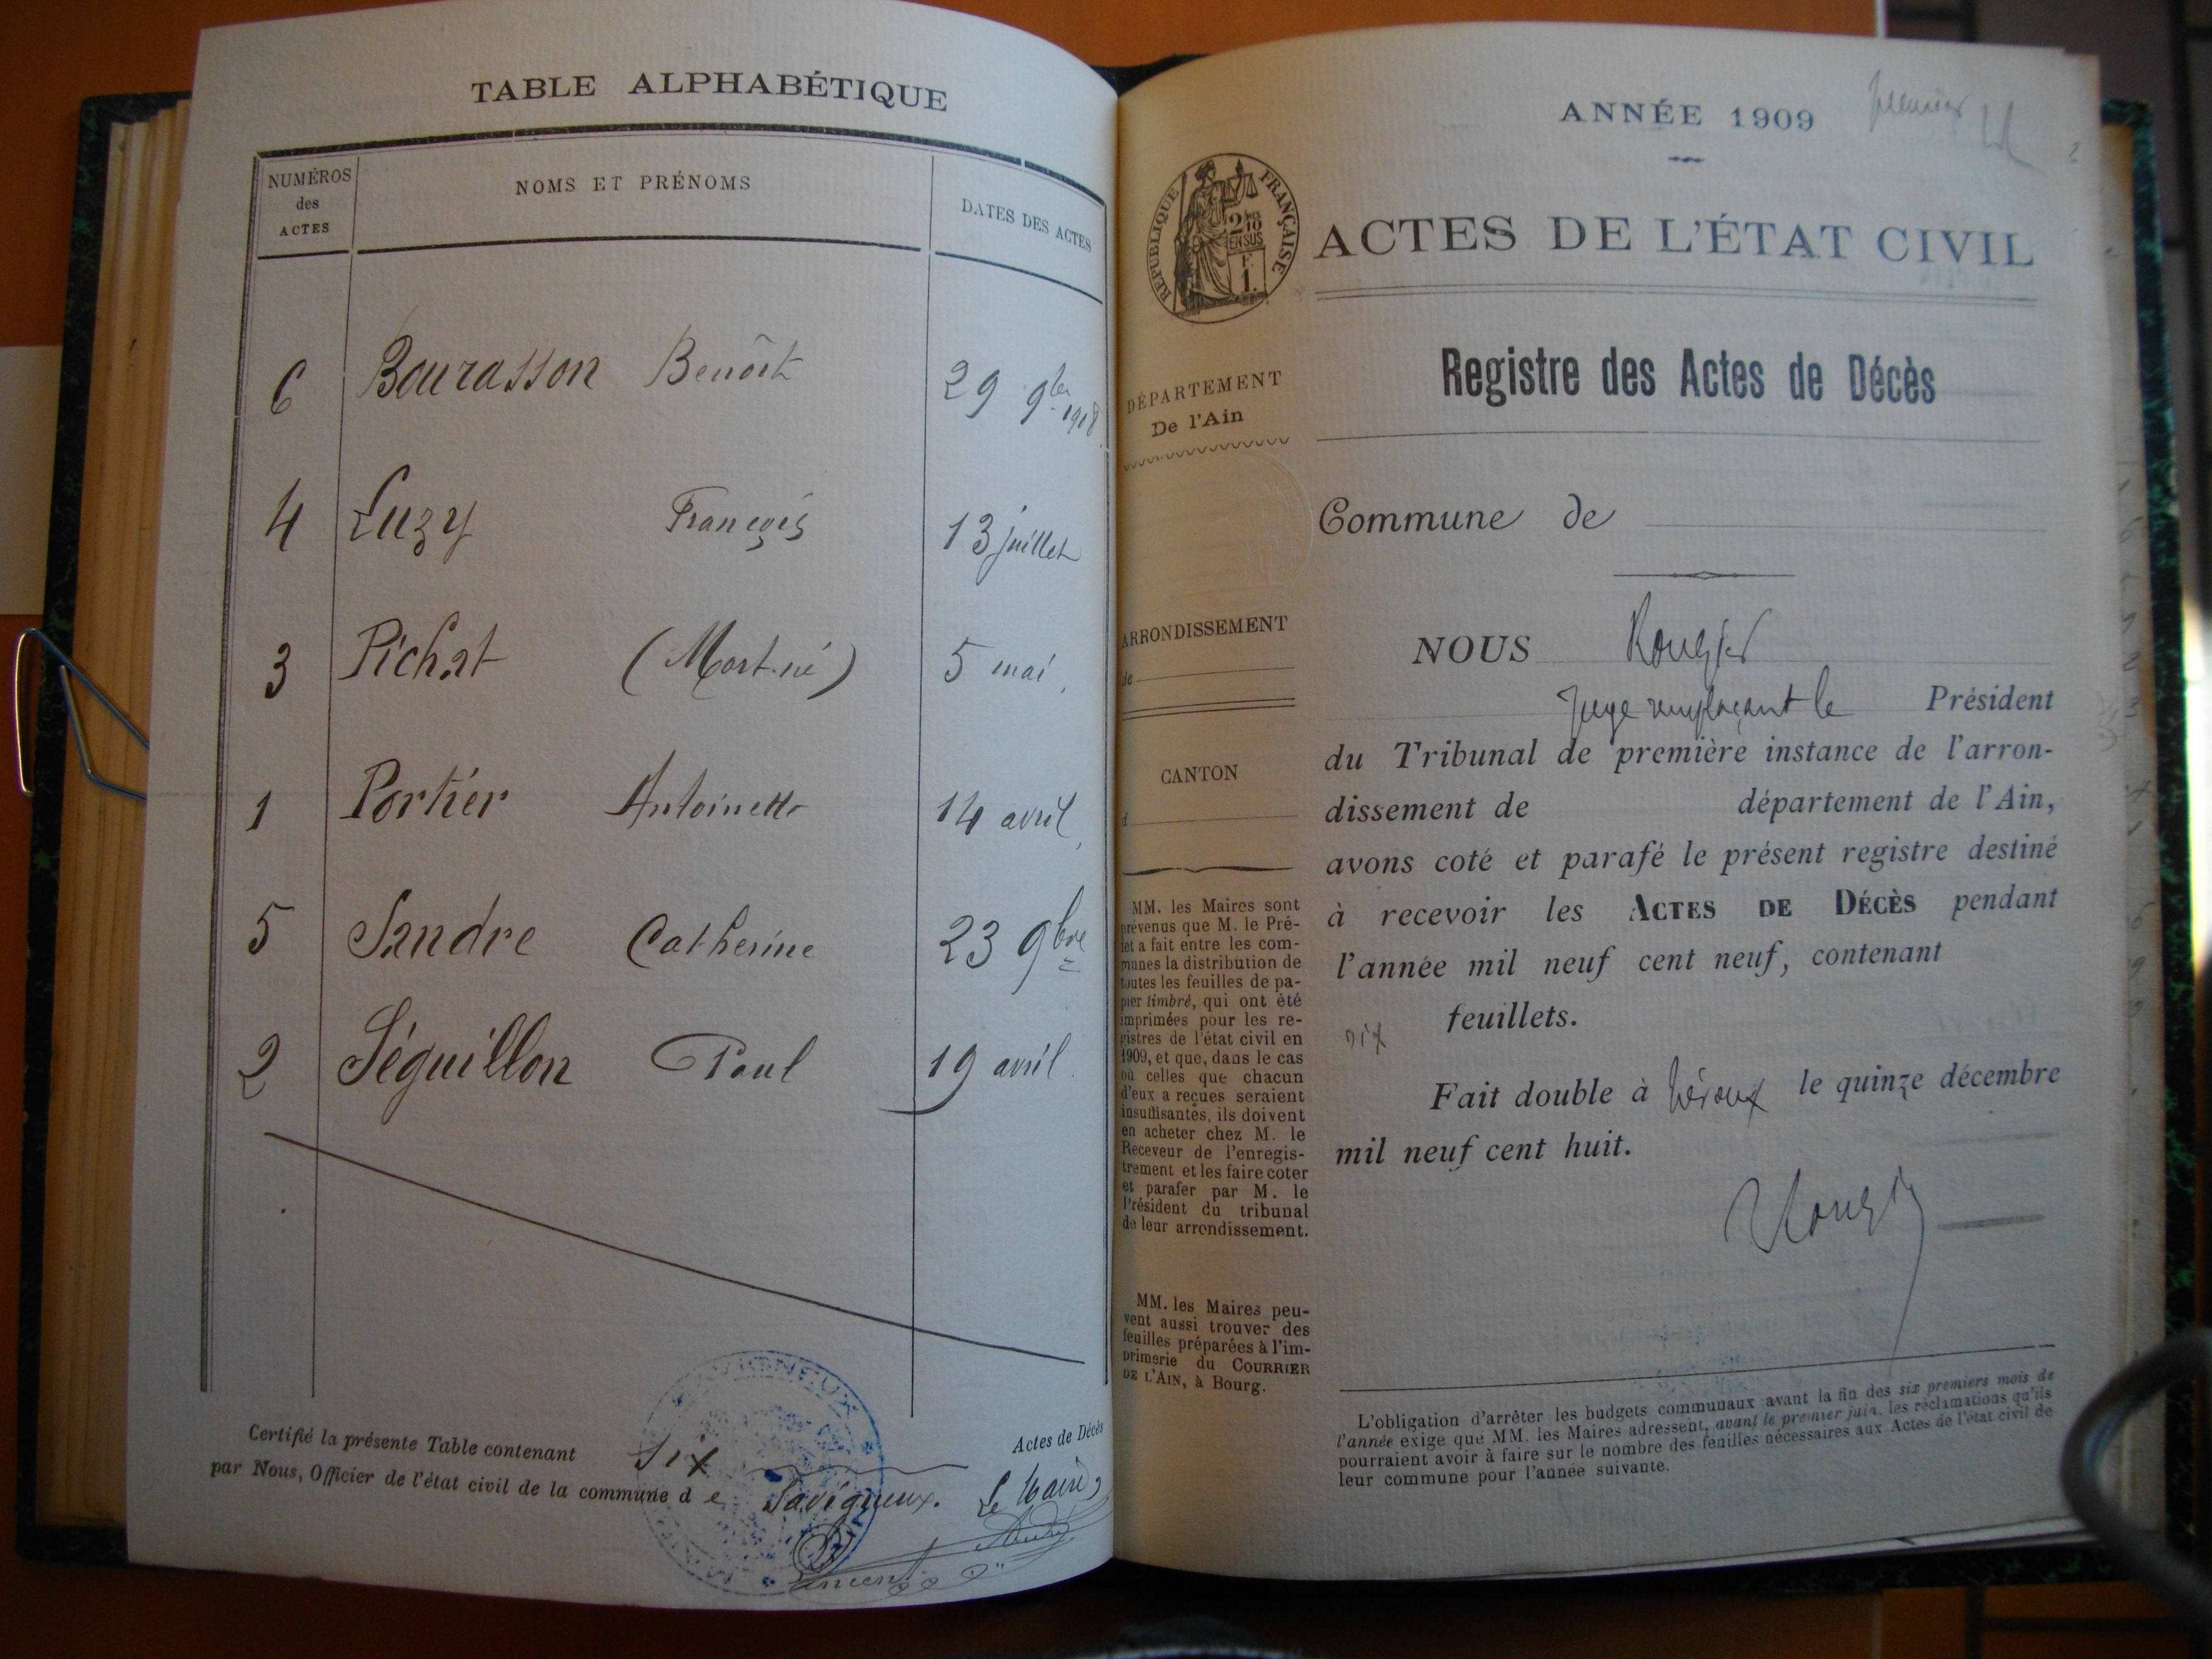 TABLE ALPHABÉTIQUE
NUMÉROS des ACTES
NOMS ET PRÉNOMS
DATES DES ACTES
6 Bourasson Benoît 29 9bre 1908
4 Luzy François 13 juillet
3 Pichat (Mort-né) 5 mai
1 Portier Antoinette 14 avril
5 Sandre Catherine 23 9bre
2 Séguillon Paul 19 avril
Certifié la présente Table contenant six Actes de Décès
par Nous, Officier de l'état civil de la commune de Savigneux. Le Maire,
ANNÉE 1909
premier
RÉPUBLIQUE FRANÇAISE
2/10
EN SUS
F.
1.
ACTES DE L'ÉTAT CIVIL
Registre des Actes de Décès
DÉPARTEMENT
De l'Ain
ARRONDISSEMENT
de
CANTON
d
MM. les Maires sont
prévenus que M. le Pré-
fet a fait entre les com-
munes la distribution de
toutes les feuilles de pa-
pier timbré, qui ont été
imprimées pour les re-
gistres de l'état civil en
1909, et que, dans le cas
où celles que chacun
d'eux a reçues seraient
insuffisantes, ils doivent
en acheter chez M. le
Receveur de l'enregis-
trement et les faire coter
et parafer par M. le
Président du tribunal
de leur arrondissement.
MM. les Maires peu-
vent aussi trouver des
feuilles préparées à l'im-
primerie du COURRIER
DE L'AIN, à Bourg.
Commune de
NOUS Rougier
Juge remplaçant le Président
du Tribunal de première instance de l'arron-
dissement de département de l'Ain,
avons coté et parafé le présent registre destiné
à recevoir les ACTES DE DÉCÈS pendant
l'année mil neuf cent neuf, contenant
dix feuillets.
Fait double à Trévoux le quinze décembre
mil neuf cent huit.
Rougier
L'obligation d'arrêter les budgets communaux avant la fin des six premiers mois de
l'année exige que MM. les Maires adressent, avant le premier juin, les réclamations qu'ils
pourraient avoir à faire sur le nombre des feuilles nécessaires aux Actes de l'état civil de
leur commune pour l'année suivante.